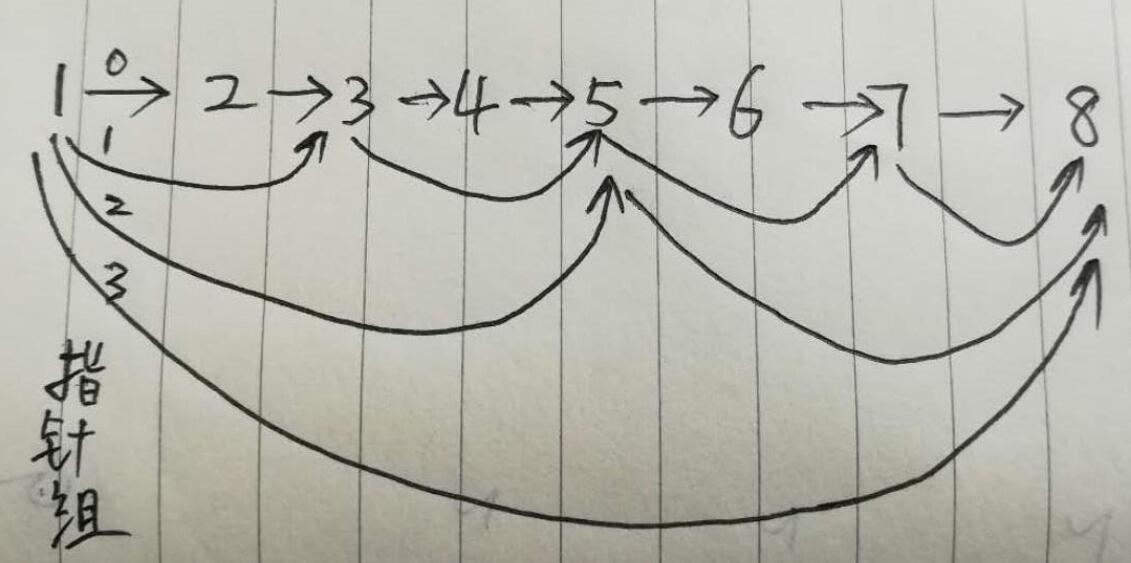 0
1 → 2 → 3 → 4 → 5 → 6 → 7 → 8
1
2
3
指
针
组